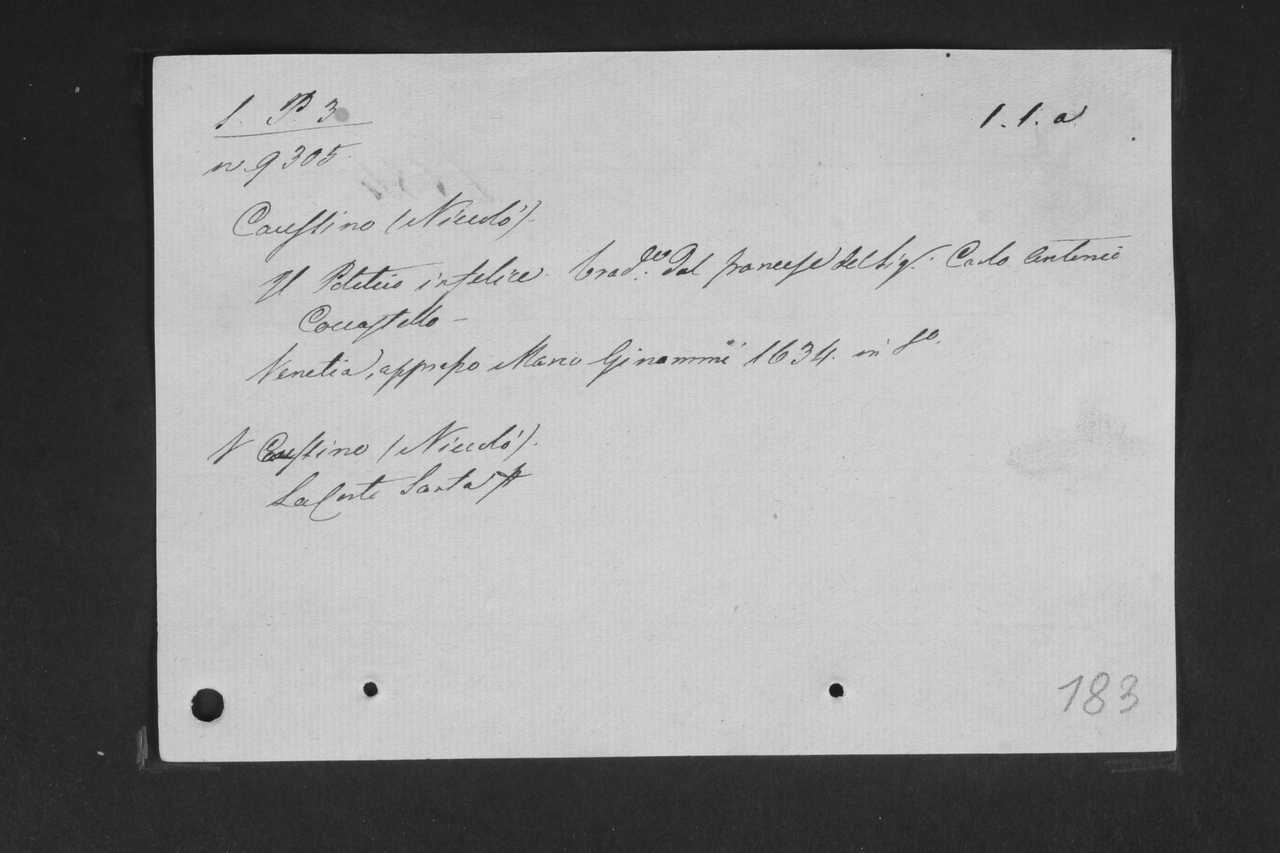 1. P. 3
1. 1. a
n. 9305
Caussino (Niccolò).
Il Politico infelice. trad.to dal francese del Sig.r Carlo Antonio
Coccastello –
Venetia, appresso Marco Ginammi 1634. in 8º.
N Caussino (Niccolò).
La Corte Santa
183